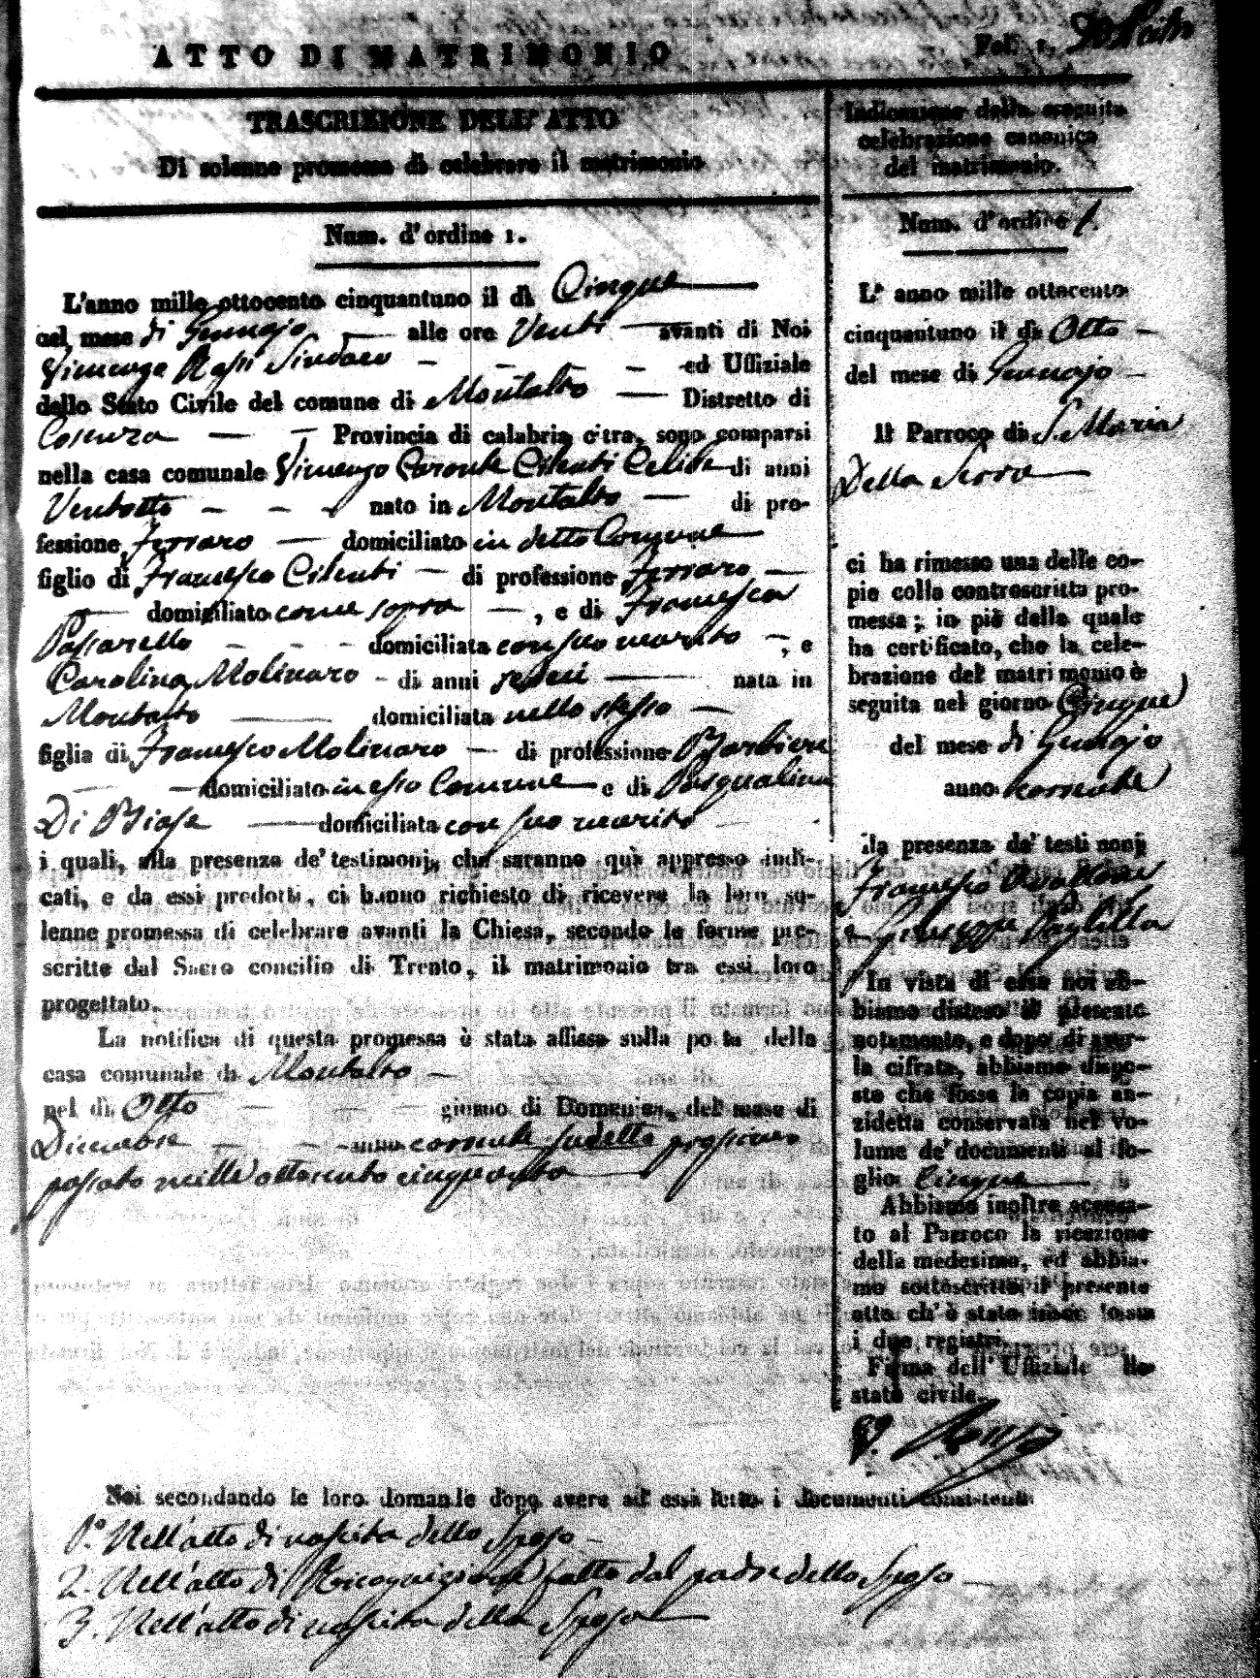 ATTO DI MATRIMONIO
Fol. 1.
TRASCRIZIONE DELL' ATTO
Di solenne promessa di celebrare il matrimonio
Num. d' ordine 1.
L'anno mille ottocento cinquantuno il dì Cinque
nel mese di Gennajo — alle ore Venti — avanti di Noi
Vincenzo Rossi Sindaco - - - - ed Uffiziale
dello Stato Civile del comune di Montalto — Distretto di
Cosenza — — Provincia di calabria citra, sono comparsi
nella casa comunale Vincenzo Cilenti Celibe di anni
Ventotto - - - nato in Montalto — di pro-
fessione Ferraro — domiciliato in detto Comune
figlio di Francesco Cilenti — di professione Ferraro —
— domiciliato come sopra —, e di Francesca
Passarello - - - domiciliata con suo marito —, e
Carolina Molinaro - di anni sedeci — nata in
Montalto — domiciliata nello stesso —
figlia di Francesco Molinaro — di professione Barbiere
— domiciliato in esso Comune — e di Pasqualina
Di Biase — domiciliata con suo marito —
i quali, alla presenza de' testimonj, che saranno quì appresso indi-
cati, e da essi prodotti, ci hanno richiesto di ricevere la loro so-
lenne promessa di celebrare avanti la Chiesa, secondo le forme pre-
scritte dal Sacro concilio di Trento, il matrimonio tra essi loro
progettato.
La notifica di questa promessa è stata affissa sulla porta della
casa comunale di Montalto —
nel dì Otto — — — giorno di Domenica, del mese di
Dicembre — — anno corrente sudetto prossimo
passato mille ottocento cinquanta
Indicazione della seguita
celebrazione canonica
del matrimonio.
Num. d' ordine 1.
L' anno mille ottocento
cinquantuno il dì Otto —
del mese di Gennajo —
Il Parroco di S. Maria
Della Serra
ci ha rimesso una delle co-
pie colla controscritta pro-
messa; in piè della quale
ha certificato, che la cele-
brazione del matrimonio è
seguita nel giorno Cinque
del mese di Gennajo
anno corrente
alla presenza de' testimonj
Francesco
e Giuseppe
In vista di essa noi ab-
biamo disteso il presente
notamento, e dopo di aver-
la cifrata, abbiamo dispo-
sto che fosse la copia an-
zidetta conservata nel vo-
lume de' documenti al fo-
glio Cinque
Abbiamo inoltre accusa-
to al Parroco la ricezione
della medesima, ed abbia-
mo sottoscritto il presente
atto ch' è stato inscritto su
i due registri.
Firma dell' Uffiziale dello
stato civile.
V. Rossi
Noi secondando le loro domande dopo avere ad essi letto i documenti consistenti
1.° Nell'atto di nascita dello Sposo —
2. Nell'atto di Ricognizione fatto dal padre dello Sposo —
3. Nell'atto di nascita della Sposa —